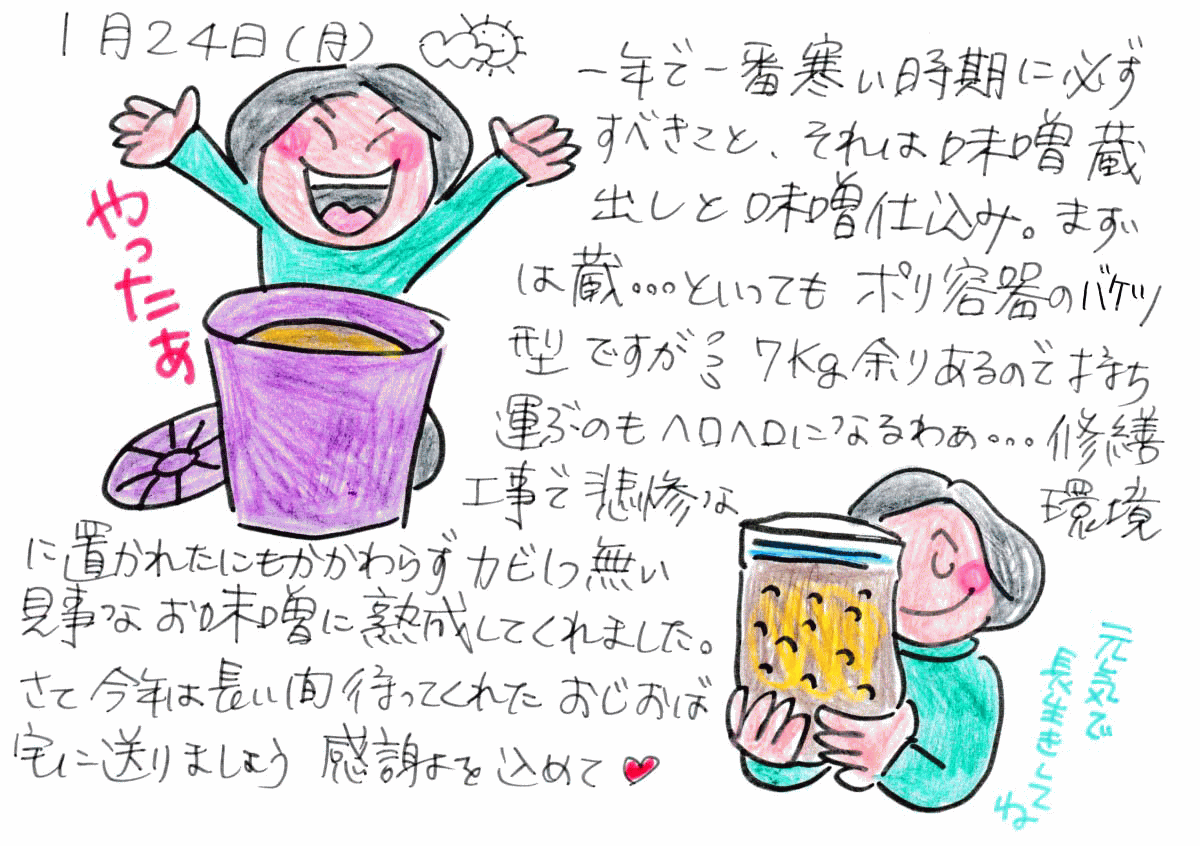 1月24日(月)
やったあ
一年で一番寒い時期に必ず
すべきこと、それは味噌蔵
出しと味噌仕込み。まず
は蔵…といってもポリ容器のバケツ
型ですが 7Kg余りあるので持ち
運ぶのもヘロヘロになるわぁ…修繕
工事で悲惨な環境
に置かれたにもかかわらずカビ1つ無い
見事なお味噌に熟成してくれました。
さて今年は長い間待ってくれたおじおば
宅に送りましょう 感謝を込めて
元気で
長生きしてね